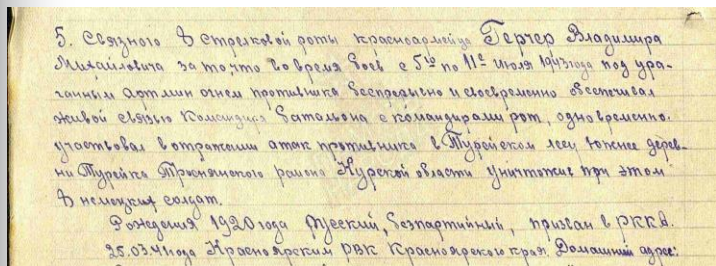 5. Связного 8 стрелковой роты красноармейца Герчер Владимира
Михайловича за то, что во время боев с 5го по 11е июля 1943 года под ура-
ганным арт мин огнем противника беспрерывно и своевременно обеспечивал
живой связью командира батальона с командирами рот, одновременно
участвовал в отражении атак противника в Турейском лесу южнее дерев-
ни Турейка Троснянского района Курской области уничтожив при этом
8 немецких солдат.
Рождения 1920 года Русский, безпартийный, призван в РККА
25.03.41 года Красноярским РВК Красноярского края. Домашний адрес: